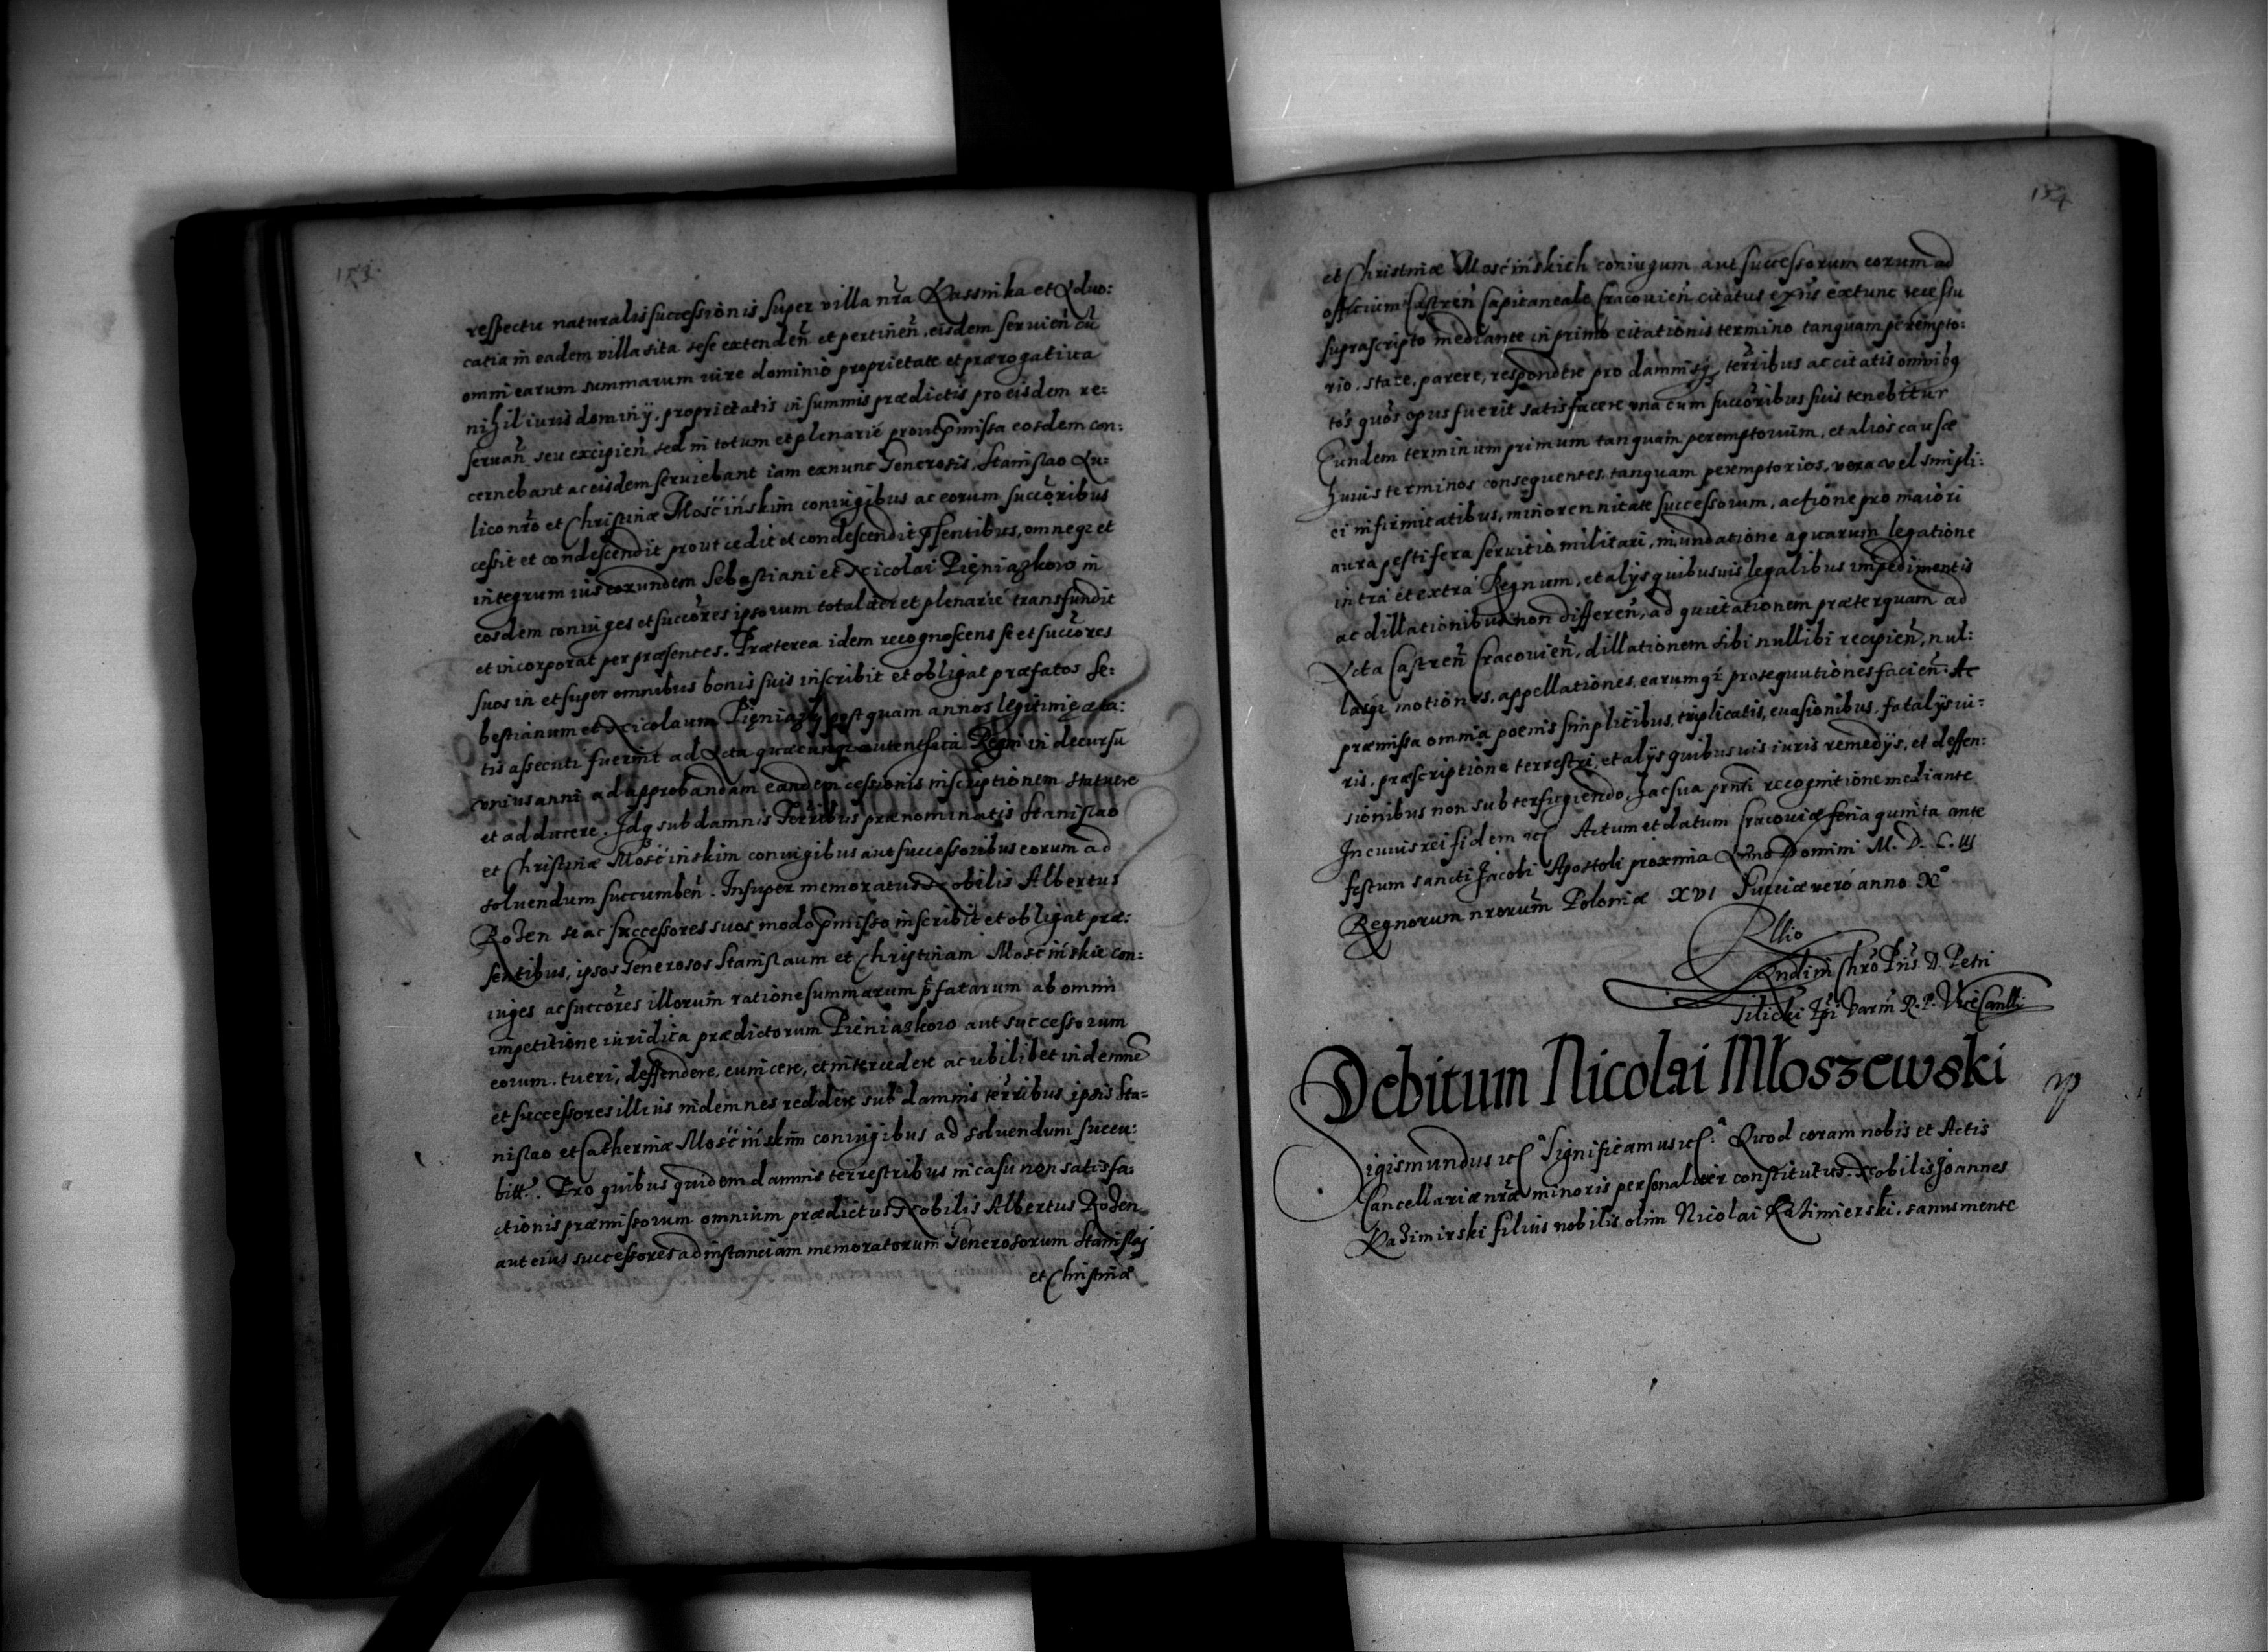 153.
respectu naturalis successionis super villa nr̃a Kassinka et Aduo:
catia in eadem villa sita sese extendeñ et pertineñ, eisdem seruieñ cũ
omni earum summarum iure dominio proprietate et prærogatiua
nihil iuris dominij, proprietatis in summis prædictis pro eisdem re:
seruañ seu excipieñ sed in totum et plenarie prout p̃missa eosdem con:
cernebant ac eisdem seruiebant iam exnunc Generosis, Stanislao Au:
lico nr̃o et Christinæ Mosćińskim coniugibus ac eorum succor̃ibus
cessit et condescendit prout cedit et condescendit p̃sentibus, omneqz et
integrum ius eorundem Sebastiani et Nicolai Pięniązkow in
eosdem coniuges et succor̃es ipsorum totaliter et plenarie transfundit
et incorporat per præsentes. Præterea idem recognoscens se et succor̃es
suos in et super omnibus bonis suis inscribit et obligat præfatos Se:
bestianum et Nicolaum Pięniązky postquam annos legitimę æta:
tis assecuti fuerint ad Acta quæcunqz autentica Regni in decursu
vnius anni ad approbandam eandem cessionis inscriptionem statuere
et adducere. Idq sub damnis Ter̃ribus prænominatis Stanislao
et Christinæ Mosćińskim coniugibus aut successoribus eorum ad
soluendum succumbeñ. Insuper memoratus Nobilis Albertus
Rożen se ac successores suos modo p̃misso inscribit et obligat præ:
sentibus, ipsos Generosos Stanislaum et Christinam Mosćińskie con:
iuges ac succor̃es illorum ratione summarum p̃fatarum ab omni
impetitione iuridica prædictorum Pieniazkow aut successorum
eorum, tueri, deffendere, euincere, et intercedere ac ubilibet indemnē
et successores illius indemnes reddere sub damnis ter̃ribus ipsis Sta=
nislao et Catherinæ Mosćińskim coniugibus ad soluendum succu:
bitt. Pro quibus quidem damnis terrestribus in casu non satisfa:
ctionis præmissorum omnium prædictus Nobilis Albertus Rożen
aut eius successores ad instanciam memoratorum Generosorum Stanislaj
et Christinæ
154
et Christinæ Mosćińskich coniugum aut successorum eorum ad
officium Castreñ Capitaneale Cracouieñ citatus extunc
suprascripto mediante in primo citationis termino tanquam perempto:
rio, stare, parere, respondere pro damnisq ter̃ribus ac citatis omnibq
tos quos opus fuerit satisfacere vna cum succor̃ibus suis tenebitur
Eundem terminum primum tanquam peremptorium, et alios causæ
huius terminos consequentes, tanquam peremptorios, vera vel simpli:
ci infirmitatibus, minorennitate successorum, actione pro maiori
aura pestifera seruitio militari, inundatione aquarum legatione
intra et extra Regnum, et alijs quibusuis legalibus impedimentis
ac dillationibus non differeñ, ad quietationem præterquam ad
Acta Castreñ Cracouieñ, dillationem sibi nullibi recipieñ, nul:
lasqz motiones, appellationes, earumqz prosequutiones facieñ. Ac
præmissa omnia poenis simplicibus, triplicatis, euasionibus, fatalijs iu:
ris, præscriptione terrestri, et alijs quibusuis iuris remedijs, et deffen:
sionibus non subterfugiendo, hac sua prñti recognitione mediante
In cuius rei fidem etc Actum et datum Cracouiæ feria quinta ante
festum sancti Jacobi Apostoli proxima Anno Domini M. D. C. III
Regnorum nrorum̃ Poloniæ XVI Sueciæ vero anno X°
Rllio
Rndi in Chr̃o Pr̃is D. Petri
Tilicki Epĩ Varm̃ R. P. ViceCanllr̃i
Debitum Nicolai Młoszewski
Sigismundus etc Significamus etc. Quod coram nobis et Actis
Cancellariæ nr̃æ minoris personaliter constitutus Nobilis Joannes
Kaźimirski filius nobilis olim Nicolai Kaźimierski, sanus mente